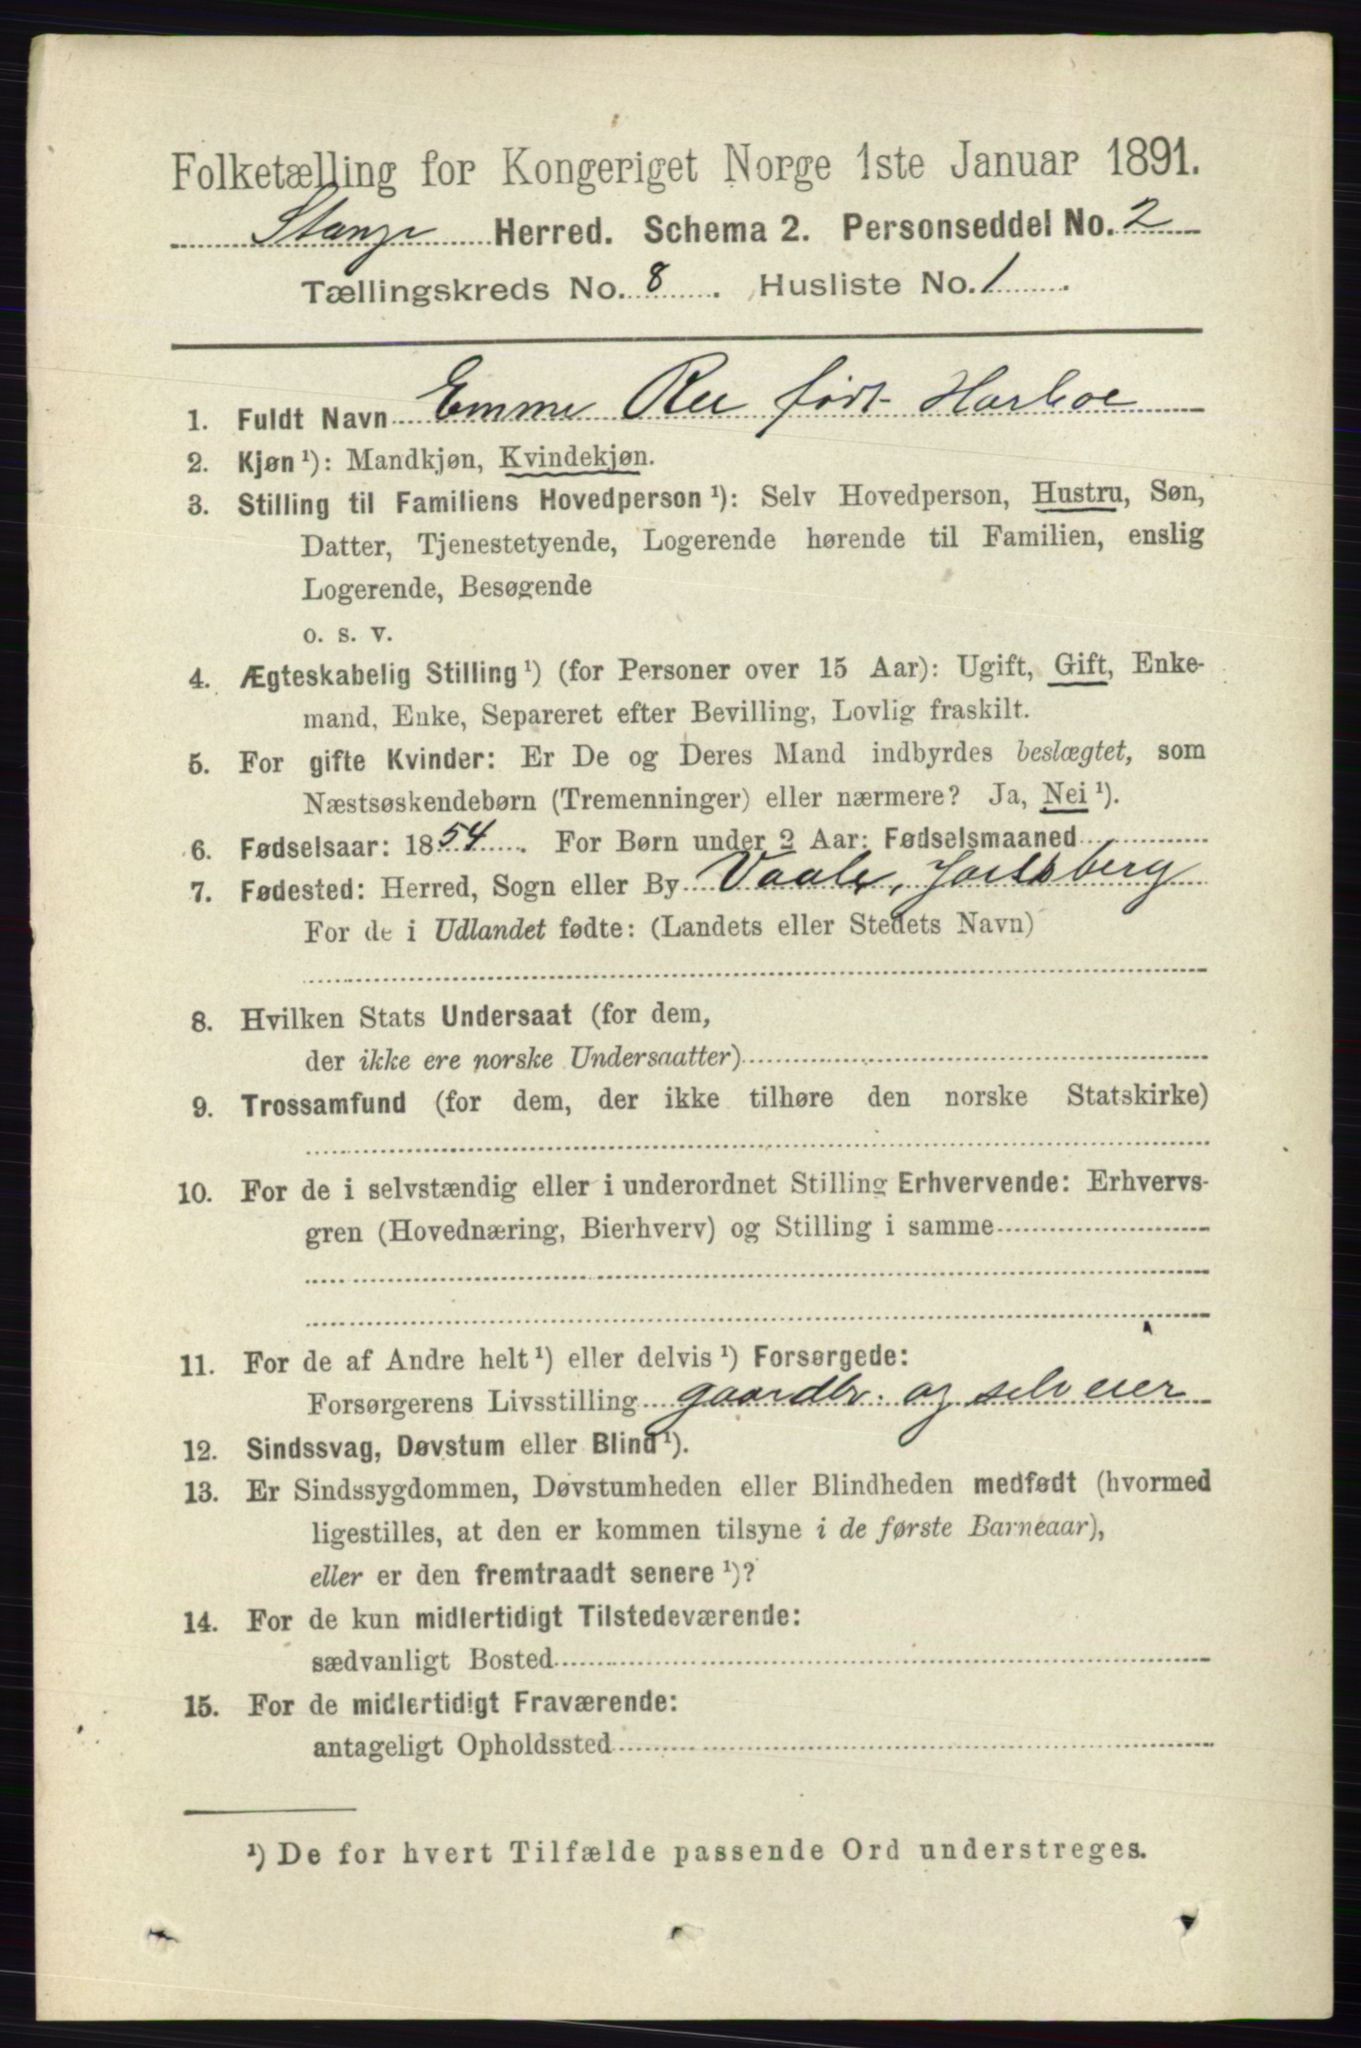 Folketælling for Kongeriget Norge 1ste Januar 1891.
Stange Herred. Schema 2. Personseddel No. 2
Tællingskreds No. 8. Husliste No. 1.
1. Fuldt Navn Emme Ree født Harboe
2. Kjøn ¹): Mandkjøn, Kvindekjøn.
3. Stilling til Familiens Hovedperson ¹): Selv Hovedperson, Hustru, Søn,
Datter, Tjenestetyende, Logerende hørende til Familien, enslig
Logerende, Besøgende
o. s. v.
4. Ægteskabelig Stilling ¹) (for Personer over 15 Aar): Ugift, Gift, Enke-
mand, Enke, Separeret efter Bevilling, Lovlig fraskilt.
5. For gifte Kvinder: Er De og Deres Mand indbyrdes beslægtet, som
Næstsøskendebørn (Tremenninger) eller nærmere? Ja, Nei ¹).
6. Fødselsaar: 1854. For Børn under 2 Aar: Fødselsmaaned
7. Fødested: Herred, Sogn eller By Vaale, Jarlsberg
For de i Udlandet fødte: (Landets eller Stedets Navn)
8. Hvilken Stats Undersaat (for dem,
der ikke ere norske Undersaatter)
9. Trossamfund (for dem, der ikke tilhøre den norske Statskirke)
10. For de i selvstændig eller i underordnet Stilling Erhvervende: Erhvervs-
gren (Hovednæring, Bierhverv) og Stilling i samme
11. For de af Andre helt ¹) eller delvis ¹) Forsørgede:
Forsørgerens Livsstilling gaardbr. og selveier
12. Sindssvag, Døvstum eller Blind ¹).
13. Er Sindssygdommen, Døvstumheden eller Blindheden medfødt (hvormed
ligestilles, at den er kommen tilsyne i de første Barneaar),
eller er den fremtraadt senere ¹)?
14. For de kun midlertidigt Tilstedeværende:
sædvanligt Bosted
15. For de midlertidigt Fraværende:
antageligt Opholdssted
¹) De for hvert Tilfælde passende Ord understreges.